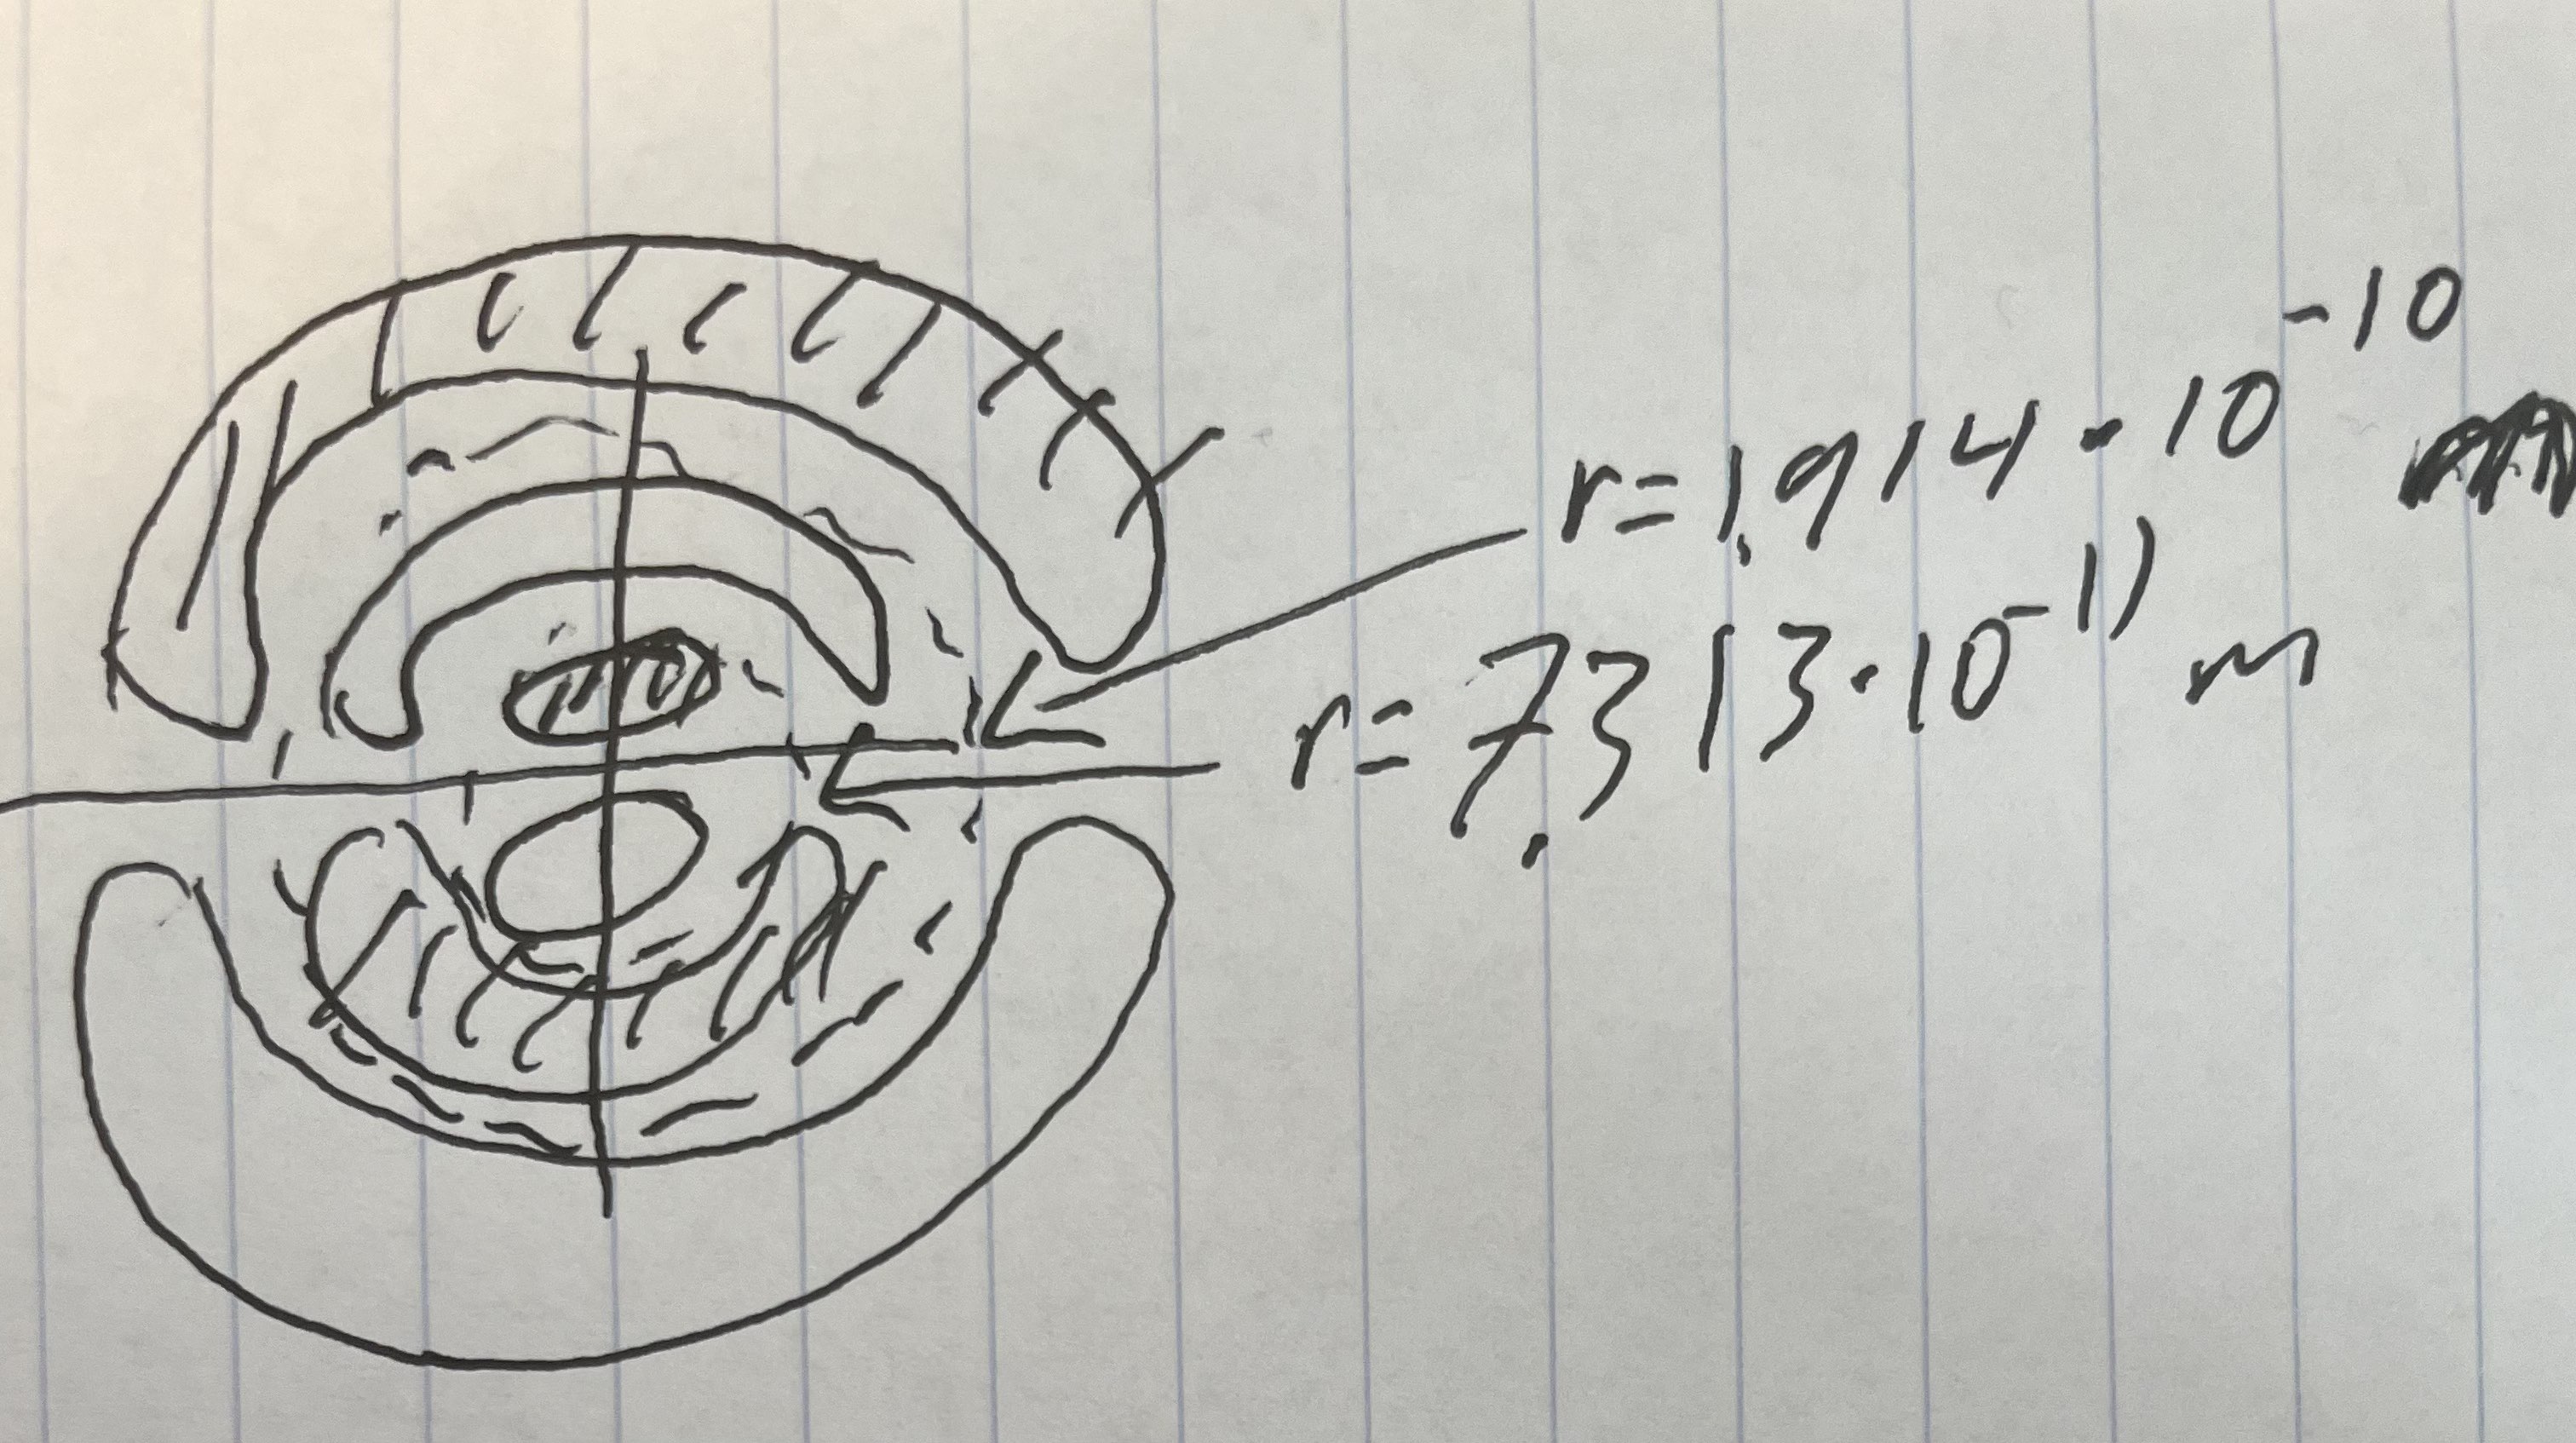 r = 1.914 · 10^-10
r = 7.313 · 10^-11 m